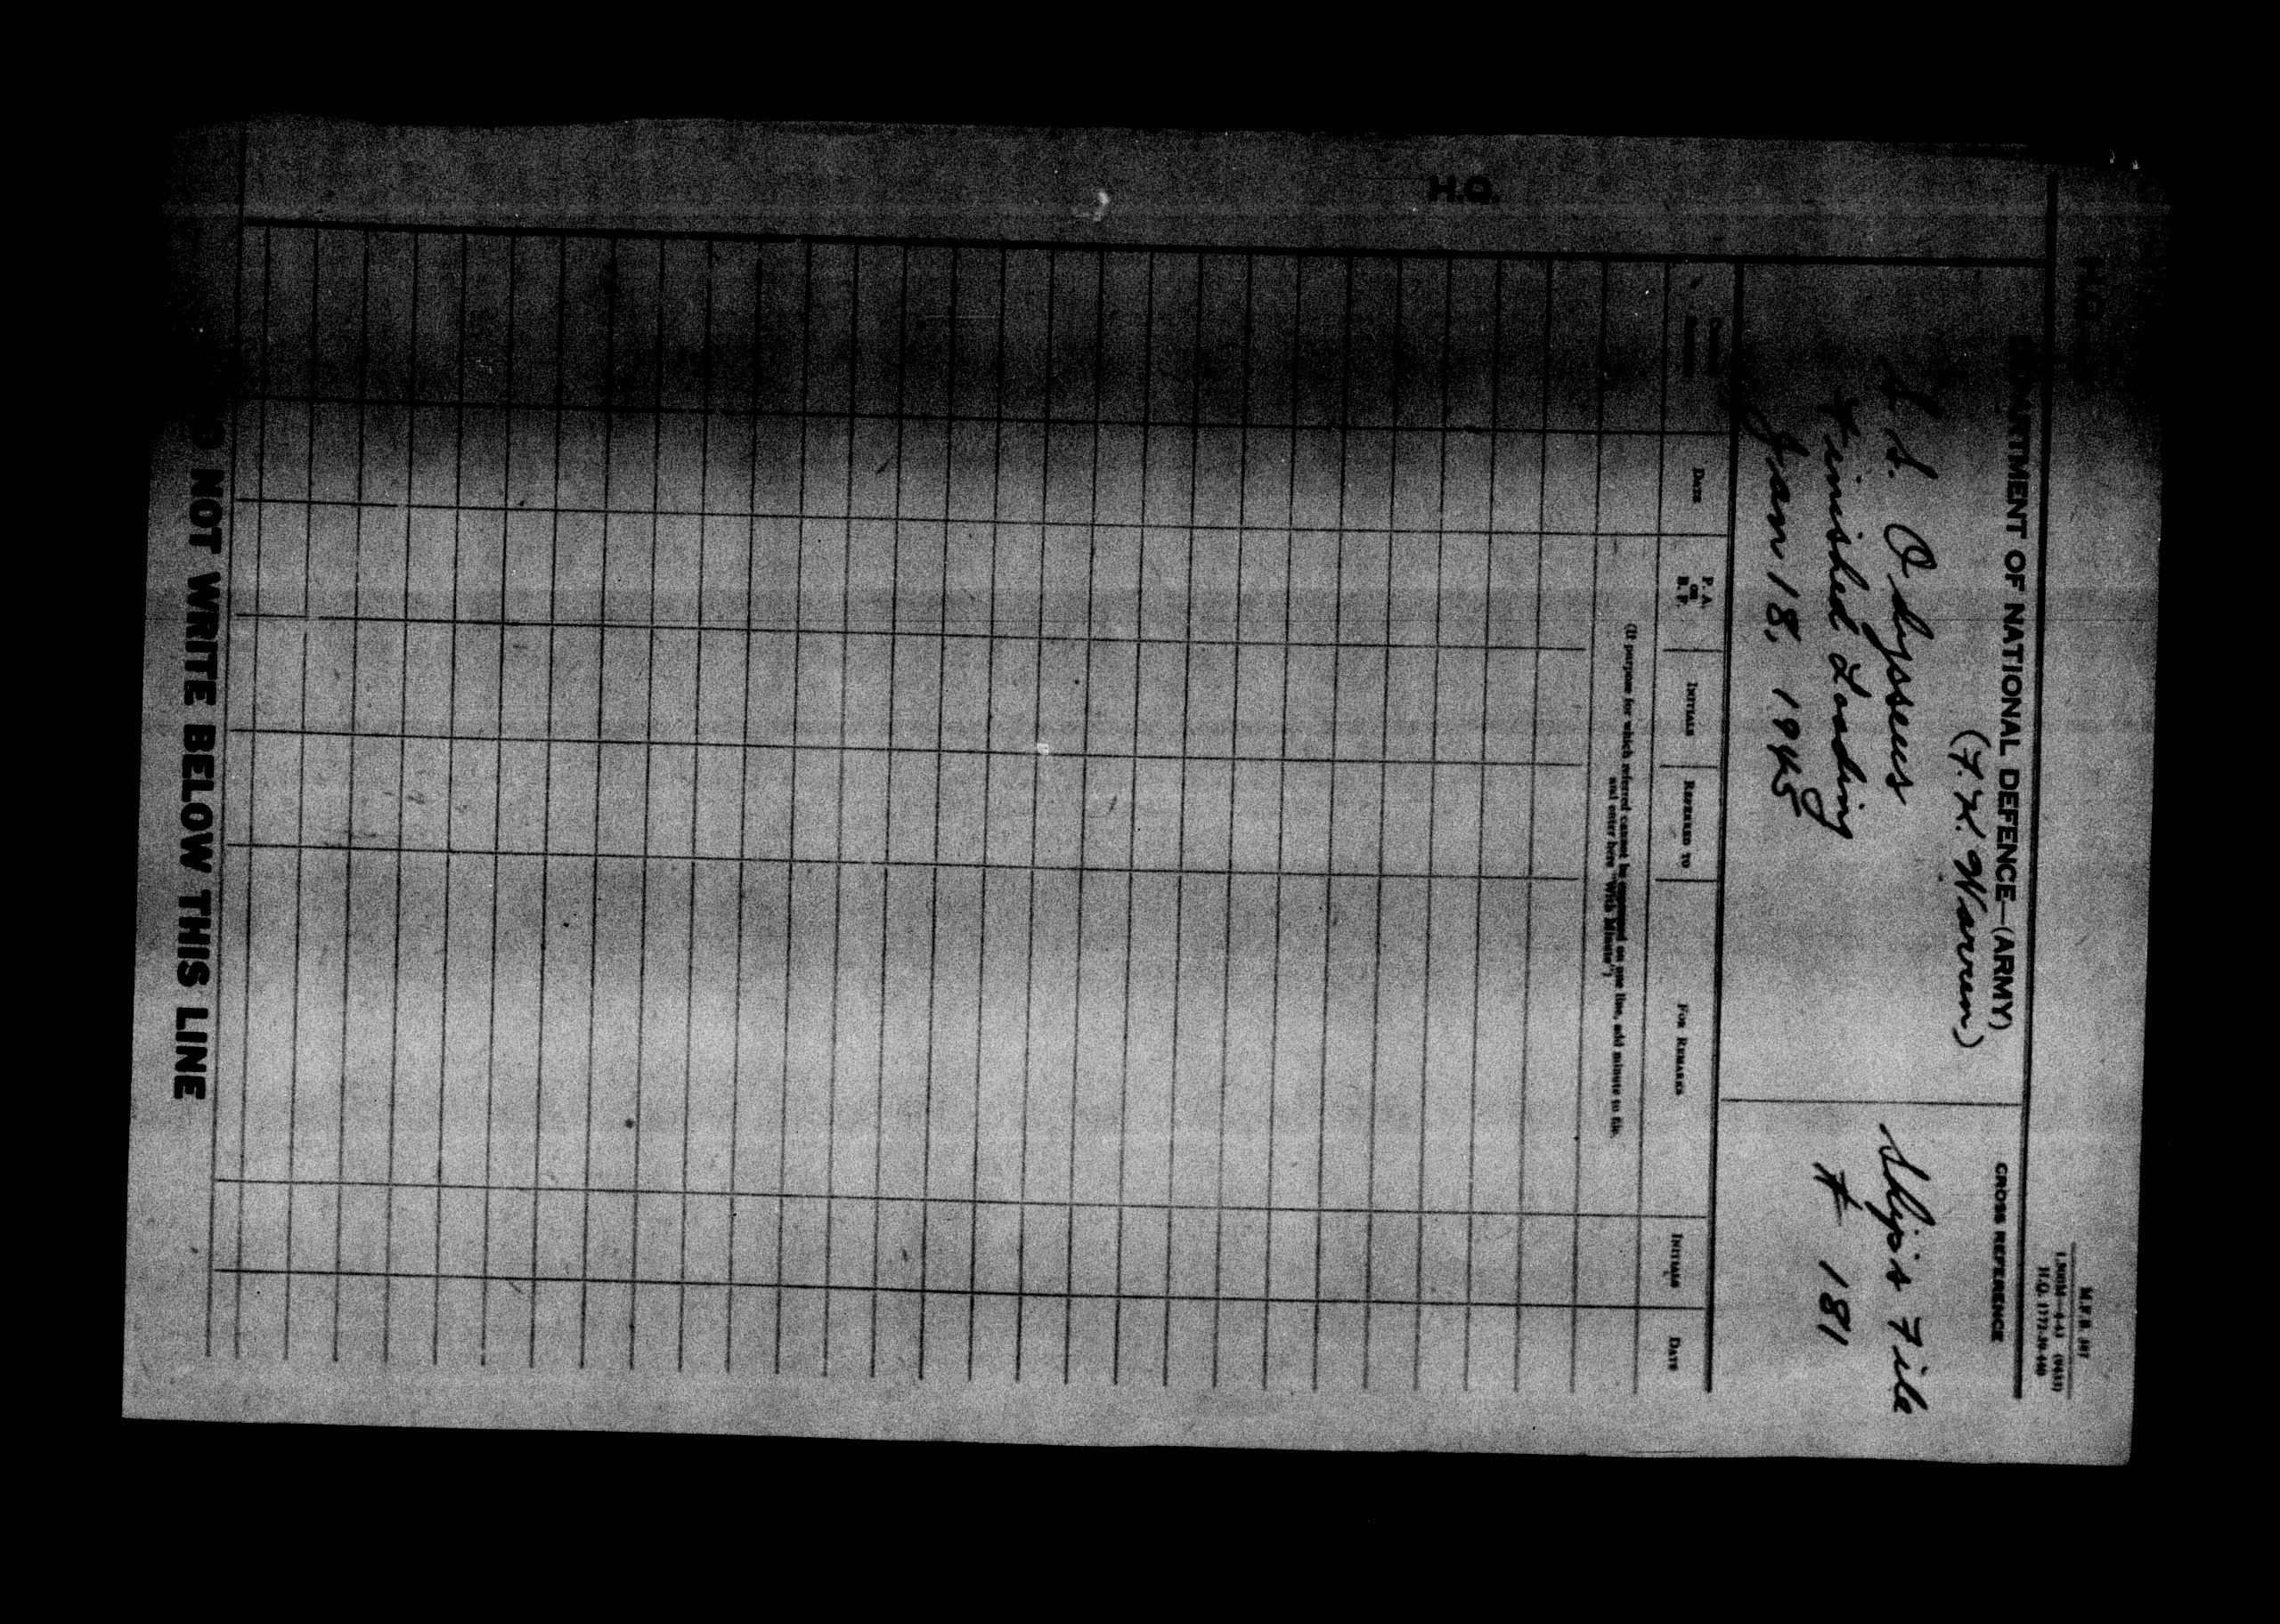 M.F.B. 107
H.Q. 1772-39-440
H.Q.
DEPARTMENT OF NATIONAL DEFENCE—(ARMY)
(F.H. Warren)
CROSS REFERENCE
S.S. Odysseus
Ship's File
Finished Loading
# 181
Jan 18, 1945
DATE
P.A. OR B.F.
INITIALS
REFERRED TO
FOR REMARKS
INITIALS
DATE
(If purpose for which referred cannot be expressed on one line, add minute to file,
and enter here "With Minute")
H.Q.
DO NOT WRITE BELOW THIS LINE